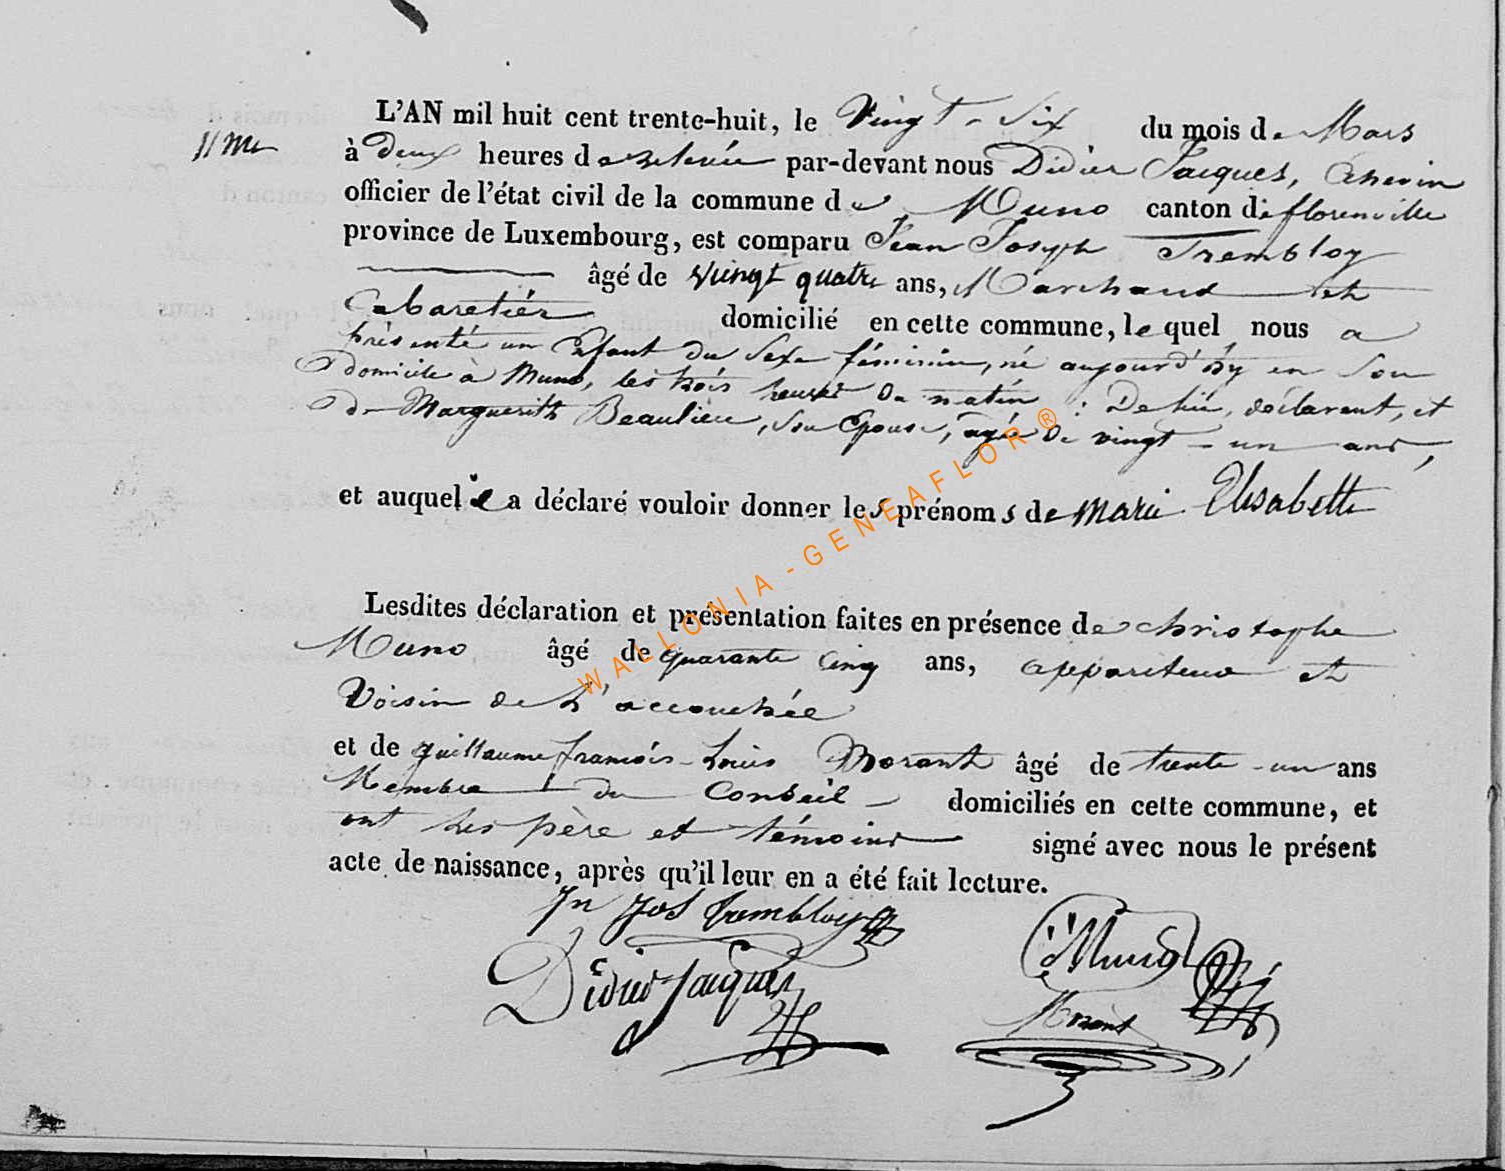 L'AN mil huit cent trente-huit, le Vingt-Six du mois de Mars
11me
à Deux heures de relevée par-devant nous Didier Jacques, Echevin
officier de l'état civil de la commune de Muno canton de florenville
province de Luxembourg, est comparu Jean Joseph Trembloy
âgé de Vingt quatre ans, Marchand et
Cabaretiér domicilié en cette commune, lequel nous a
présenté un Enfant du Sexe féminin, né aujourd'huy en Son
domicile à Muno, les trois heures du matin : De lui, déclarant, et
de Marguerith Beaulieu, Son Epouse, agée de vingt-un ans,
et auquel il a déclaré vouloir donner les prénoms de Marie Elisabette
Lesdites déclaration et présentation faites en présence de christophe
Muno âgé de quarante cinq ans, appariteur et
Voisin de l'accouchée
et de guillaume françois-Louis Morant âgé de trente-un ans
Membre du Conseil domiciliés en cette commune, et
ont les père et témoins signé avec nous le présent
acte de naissance, après qu'il leur en a été fait lecture.
Jn Jos Trembloy
Muno
Didier Jacques
Morant
WALLONIA-GENEAFLOR®